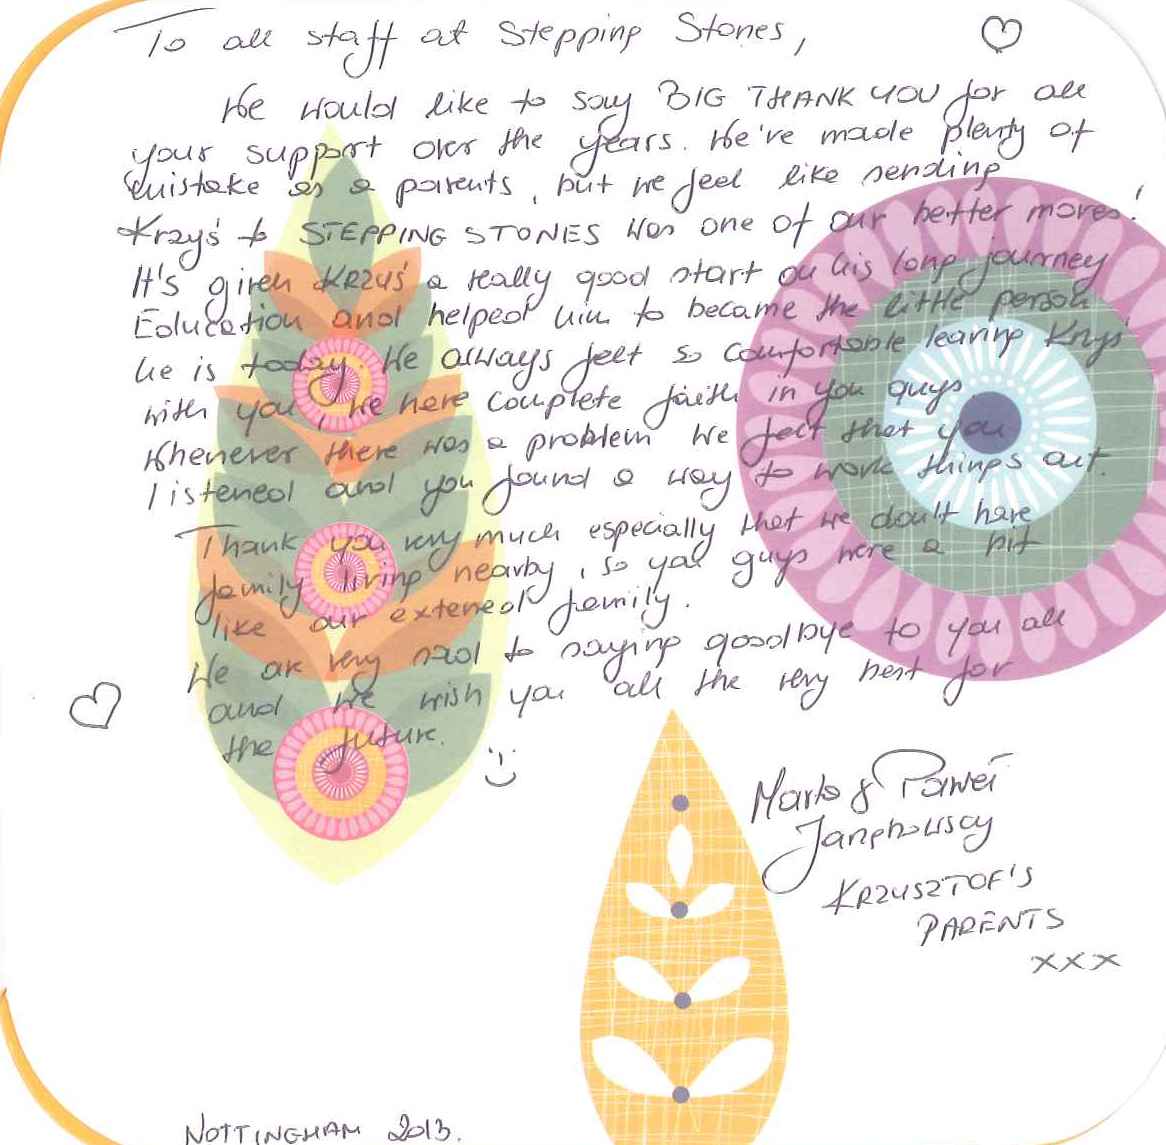 To all staff at Stepping Stones,
We would like to say BIG THANK YOU for all
your support over the years. We've made plenty of
mistake as a parents, but we feel like sending
Krzyś to STEPPING STONES was one of our better moves!
It's given KRZYŚ a really good start on his long journey
Education and helped him to became the little person
he is today. We always felt so comfortable leaving Krzyś
with you, we have complete faith in you guys.
Whenever there was a problem we felt that you
listened and you found a way to work things out.
Thank you very much especially that we don't have
family living nearby, so you guys were a bit
like our extened family.
We are very sad to saying goodbye to you all
and we wish you all the very best for
the future.
Marta & Paweł
KRZYSZTOF'S
PARENTS
xxx
NOTTINGHAM 2013.